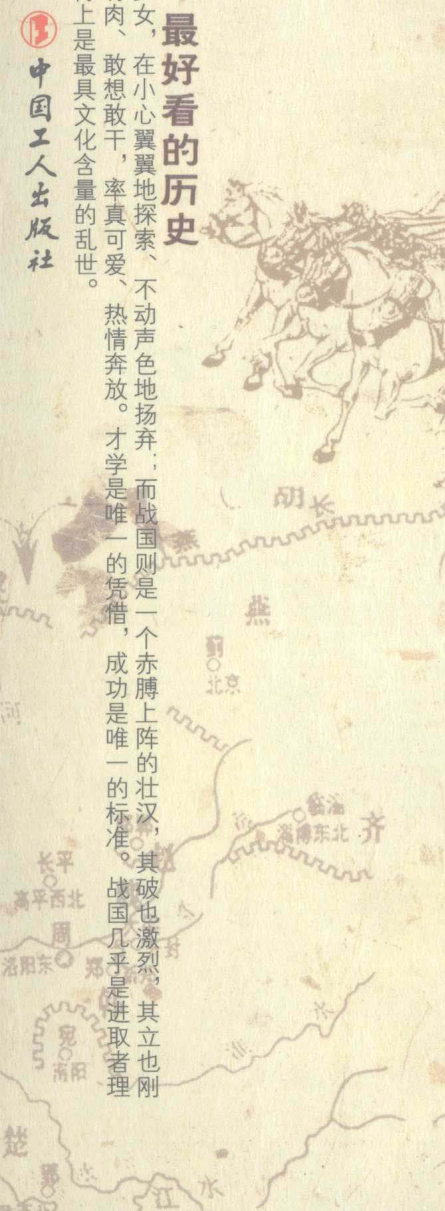 最好看的历史
女，在小心翼翼地探索、不动声色地扬弃；而战国则是一个赤膊上阵的壮汉，其破也激烈，其立也刚
肉、敢想敢干，率真可爱、热情奔放。才学是唯一的凭借，成功是唯一的标准。战国几乎是进取者理
上是最具文化含量的乱世。
中国工人出版社
胡
长
燕
燕
蓟
北京
河
临淄
淄博东北
齐
长平
高平西北
赵
周
洛阳东
郑
封
宛
南阳
水
楚
郢
江
水